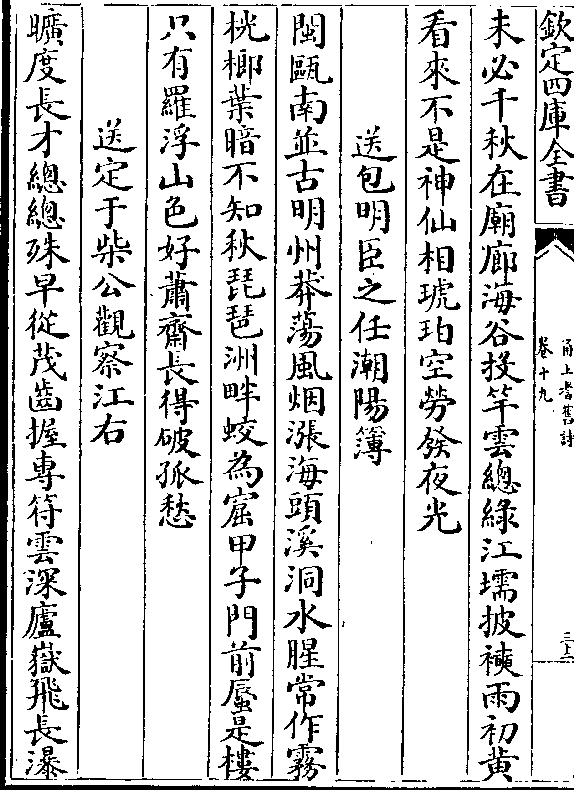 欽定四庫全書
甬上耆舊詩
卷十九
未必千秋在廟廊海谷投竿雲總綠江壖披襖雨初黄
看來不是神仙相琥珀空勞發夜光
送包明臣之任潮陽簿
閩甌南並古明州莽蕩風烟漲海頭溪洞水腥常作霧
桄榔葉暗不知秋琵琶洲畔蛟為窟甲子門前蜃是樓
只有羅浮山色好蕭齋長得破孤愁
送定于柴公觀察江右
曠度長才總總殊早從茂齒握專符雲深廬嶽飛長瀑